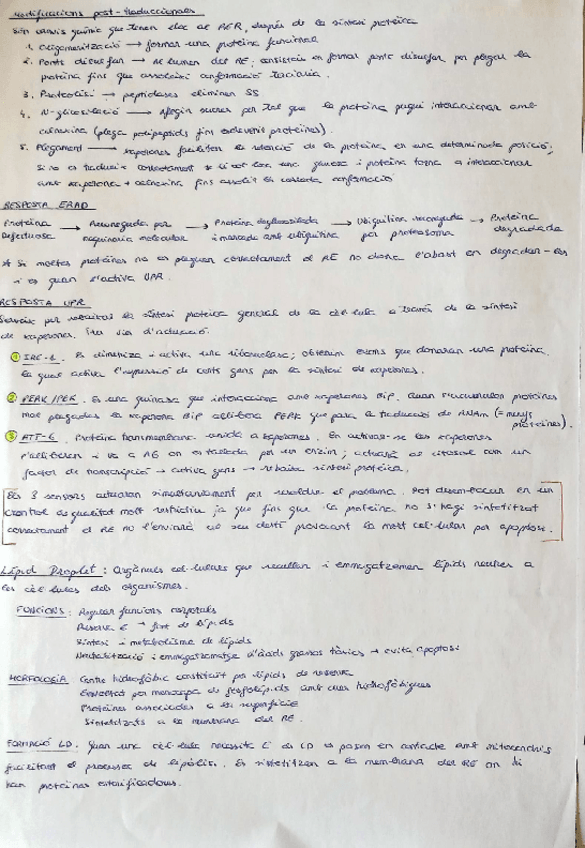 Modificacions post-traduccionals
Són canvis químics que tenen lloc al RER, després de la síntesi proteica
1. Oligomerització → formar una proteïna funcional
2. Ponts disulfur → al lumen del RE; consisteix en formar ponts disulfur per plegar la
proteïna fins que assoleixi conformació terciària.
3. Proteolisi → peptidases eliminen SS
4. N-glicosilació → afegir sucres per tal que la proteïna pugui interaccionar amb
calnexina (plega polipèptids fins esdevenir proteïnes).
5. Plegament → xaperones faciliten la retenció de la proteïna en una determinada posició;
Si no es tradueix correctament una glucosa i proteïna torna a interaccionar
amb xaperona + calnexina fins assolir la correcta conformació
RESPOSTA ERAD
Proteïna → Reconeguda per → Proteïna desglicosilada → Ubiquitina reconeguda → Proteïna
defectuosa maquinaria molecular i marcada amb ubiquitina per proteasoma degradada
* Si moltes proteïnes no es pleguen correctament el RE no dona l'abast en degradar-les
i es quan s'activa UPR.
RESPOSTA UPR
Serveix per rebaixar la síntesi proteica general de la cèl·lula a través de la síntesi
de xaperones. 3 vies d'actuació.
1 IRE-1. Es dimeritza i activa una ribonucleasa; obtenim exons que donaran una proteïna
la qual activa l'expressió de certs gens per la síntesi de xaperones.
2 PERK/PEK. Es una quinasa que interacciona amb xaperones BiP. Quan s'acumulen proteïnes
mal plegades la xaperona BiP allibera PERK que para la traducció de RNAm (= menys
proteïnes).
3 ATF-6. Proteïna transmembrana unida a xaperones. En activar-se les xaperones
s'alliberen i va a AG on es tallada per un enzim; actuarà al citosol com un
factor de transcripció → activa gens → rebaixa síntesi proteica.
Els 3 sensors actuaran simultàniament per resoldre el problema. Pot desembocar en un
control de qualitat molt restrictiu ja que fins que la proteïna no s'hagi sintetitzat
correctament el RE no l'enviarà al seu destí provocant la mort cel·lular per apoptosi.
Lípid Droplet: Orgànuls cel·lulars que recullen i emmagatzemen lípids neutres a
les cèl·lules dels organismes.
FUNCIONS: Regular funcions corporals
Reserva E → font de lípids
Síntesi i metabolisme de lípids
Neutralització i emmagatzematge d'àcids grassos tòxics → evita apoptosi
MORFOLOGIA Centre hidrofòbic constituït per lípids de reserva
Envoltat per monocapa de fosfolípids amb cues hidrofòbiques
Proteïnes associades a la superfície
Sintetitzats a la membrana del RE.
FORMACIÓ LD. Quan una cèl·lula necessita E els LD es posen en contacte amb mitocondris
facilitant el processa de lipòlisi. Es sintetitzen a la membrana del RE on hi
han proteïnes esterificadores.